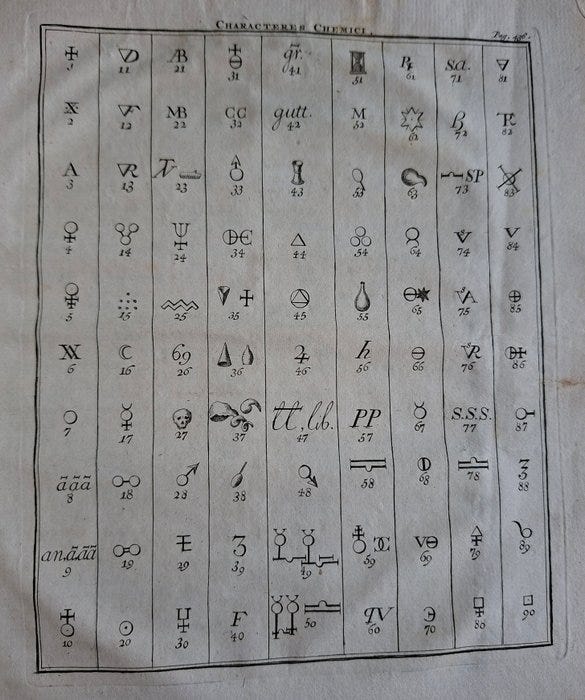 CHARACTERES CHEMICI.
Pag.
AB gr̃. ℞ s.a.
1 11 21 31 41 51 61 71 81
MB CC gutt. M
2 12 22 32 42 52 62 72 82
A SP
3 13 23 33 43 53 63 73 83
4 14 24 34 44 54 64 74 84
5 15 25 35 45 55 65 75 85
69 h
6 16 26 36 46 56 66 76 86
lib. PP S.S.S.
7 17 27 37 47 57 67 77 87
ããã
8 18 28 38 48 58 68 78 88
an.ããã 3
9 19 29 39 49 59 69 79 89
F qV
10 20 30 40 50 60 70 80 90